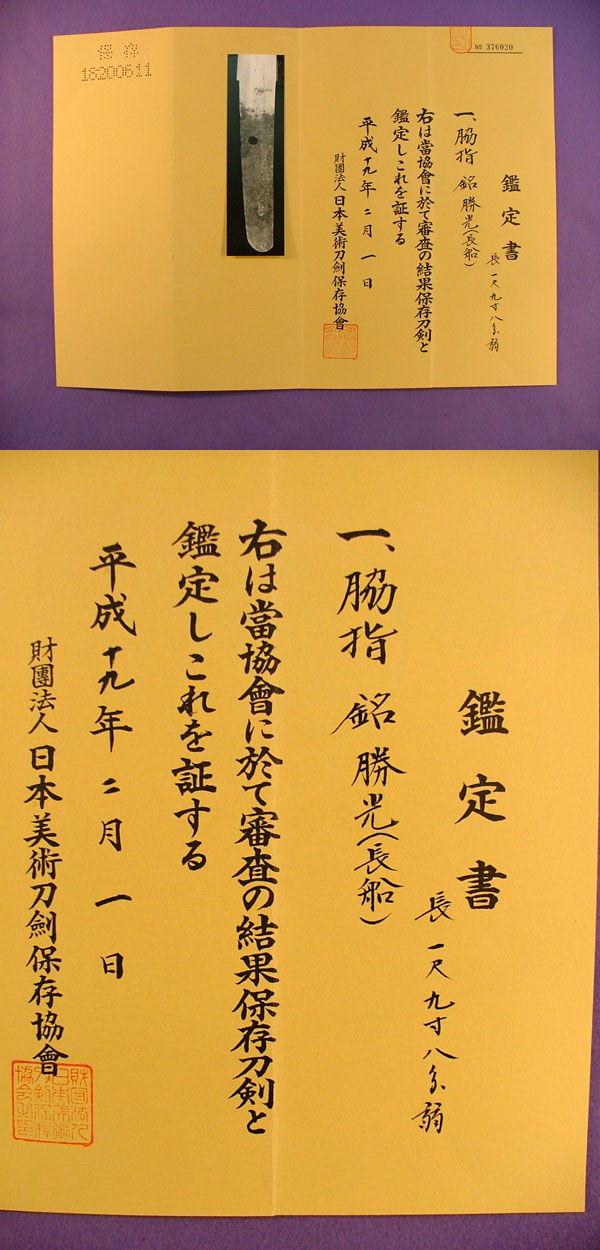 保存
18200611
№ 376020
鑑定書
一、脇指 銘 勝光(長船)
長一尺九寸八分弱
右は當協會に於て審査の結果保存刀剣と
鑑定しこれを証する
平成十九年二月一日
財團法人日本美術刀劍保存協會
鑑定書
長一尺九寸八分弱
一、脇指 銘 勝光(長船)
右は當協會に於て審査の結果保存刀剣と
鑑定しこれを証する
平成十九年二月一日
財團法人日本美術刀劍保存協會